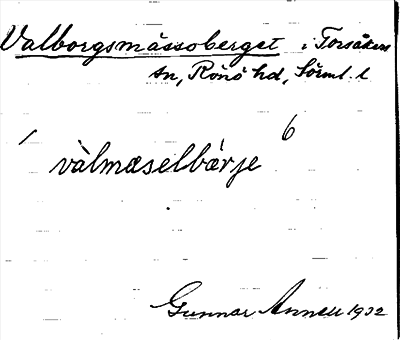 Valborgsmässoberget i Torsåkers
sn, Rönö hd, Sörml. l
/ 6
vàlmæselbǽrje
Gunnar Annell 1932